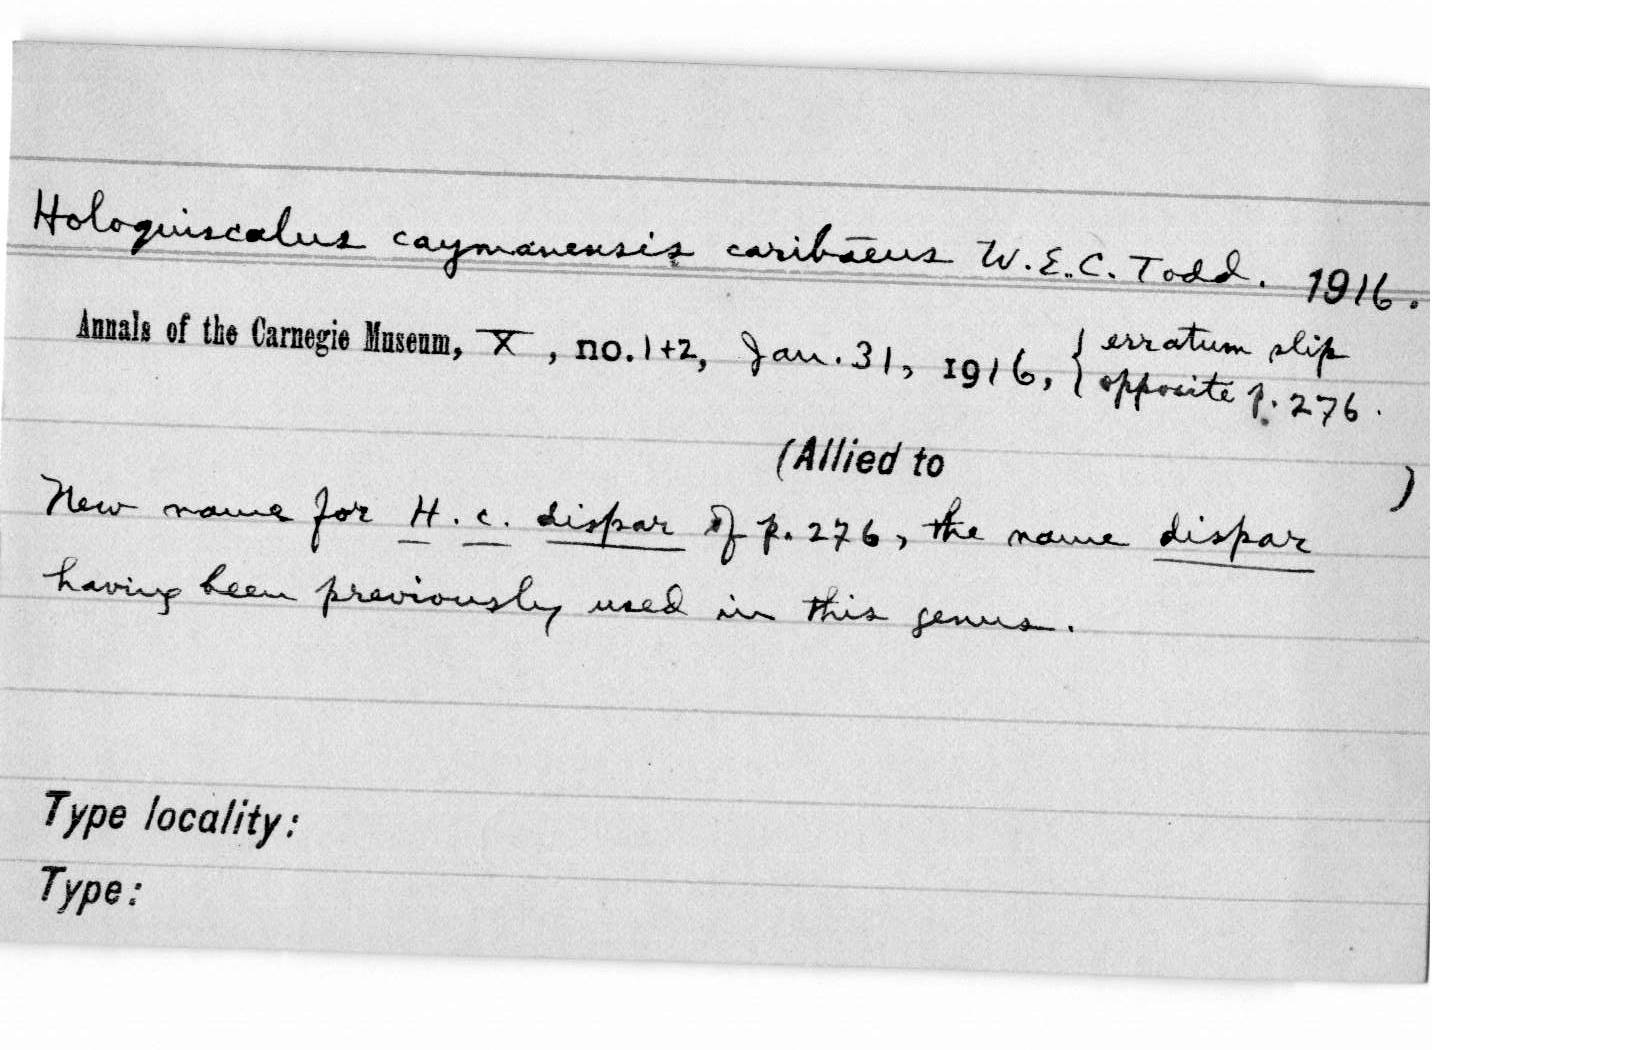 Holoquiscalus caymanensis caribaeus W.E.C. Todd. 1916.
Annals of the Carnegie Museum, X, no. 1+2, Jan. 31, 1916, { erratum slip
opposite p. 276.
(Allied to )
New name for H. c. dispar of p. 276, the name dispar
having been previously used in this genus.
Type locality:
Type: